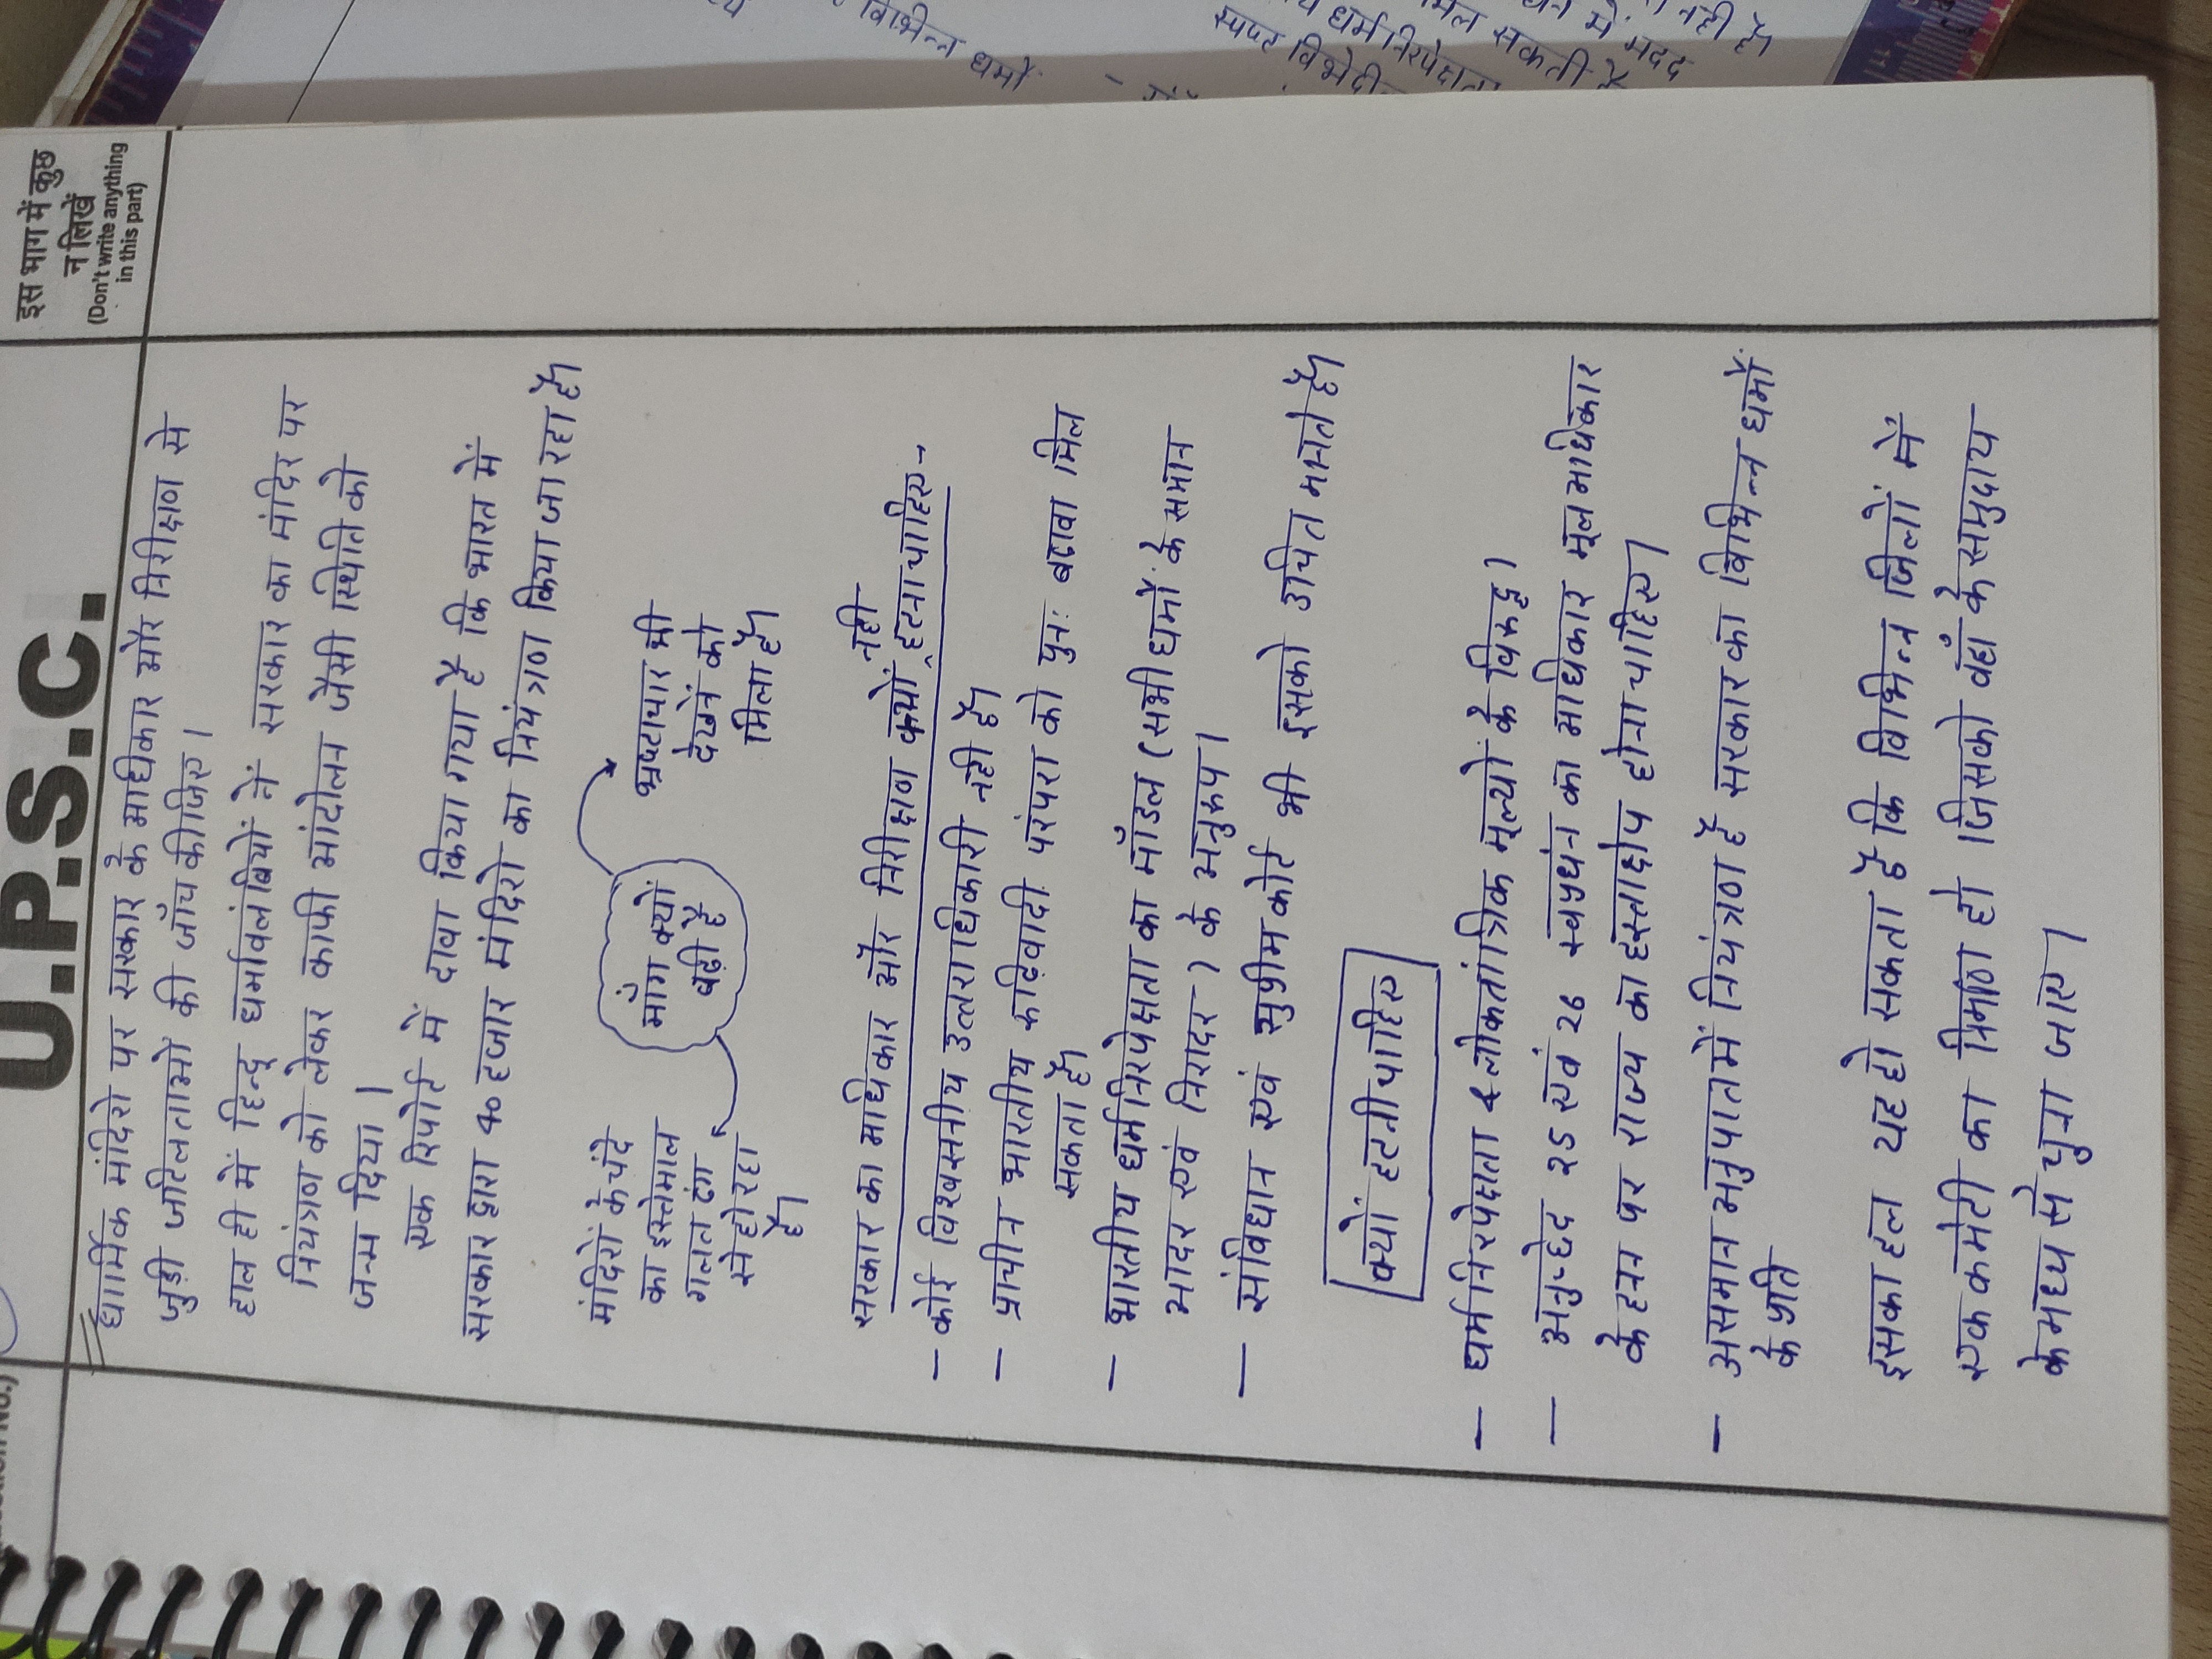 U.P.S.C.
इस भाग में कुछ
न लिखें
(Don't write anything
in this part)
धार्मिक मंदिरो पर सरकार के अधिकार और निरीक्षण से
जुड़ी जटिलताओं की जाँच कीजिए।
हाल ही में हिन्दू धर्मावलंबियों नें सरकार का मंदिर पर
नियंत्रण को लेकर काफी आंदोलन जैसी स्थिति को
जन्म दिया।
एक रिपोर्ट में दावा किया गया है कि भारत में
सरकार द्वारा 40 हजार मंदिरो का नियंत्रण किया जा रहा है।
माँग क्यों
बढ़ी है
भ्रष्टाचार भी
देखनें को
मिला है।
मंदिरों के चंदे
का इस्तेमाल
गलत ढंग
से हो रहा
है।
सरकार का अधिकार और निरीक्षण क्यों नही हटना चाहिए-
- कोई विश्वसनीय उत्तराधिकारी नही है।
- प्राचीन भारतीय रूढ़िवादी परंपरा को पुनः बढावा मिल
सकता है।
- भारतीय धर्मनिरपेक्षता का मॉडल (सभी धर्मो के समान
आदर एवं निरादर) के अनुरुप।
- संविधान एवं सुप्रीम कोर्ट भी इसको उचित मानते है।
क्यों हटनी चाहिए
- धर्मनिरपेक्षता & लोकतांत्रिक मूल्यो के विरुद्ध।
- अनुच्छेद 25 एवं 26 स्वप्रधंन का अधिकार मूल अधिकार
के हनन पर राज्य का हस्ताक्षेप होना चाहिए।
- असमान अनुपात में नियंत्रण है सरकार का विभिन्न धर्मों
के प्रति
इसका हल यह हो सकता है कि विभिन्न जिलों में
एक कमेटी का निर्माण हो जिसको वहाँ के समुदाय
के मध्य से चुना जाए।
विभिन्न धर्मो
स्पष्ट विभेदी
धर्मनिरपेक्षता
सकती है
में मदद
नही है